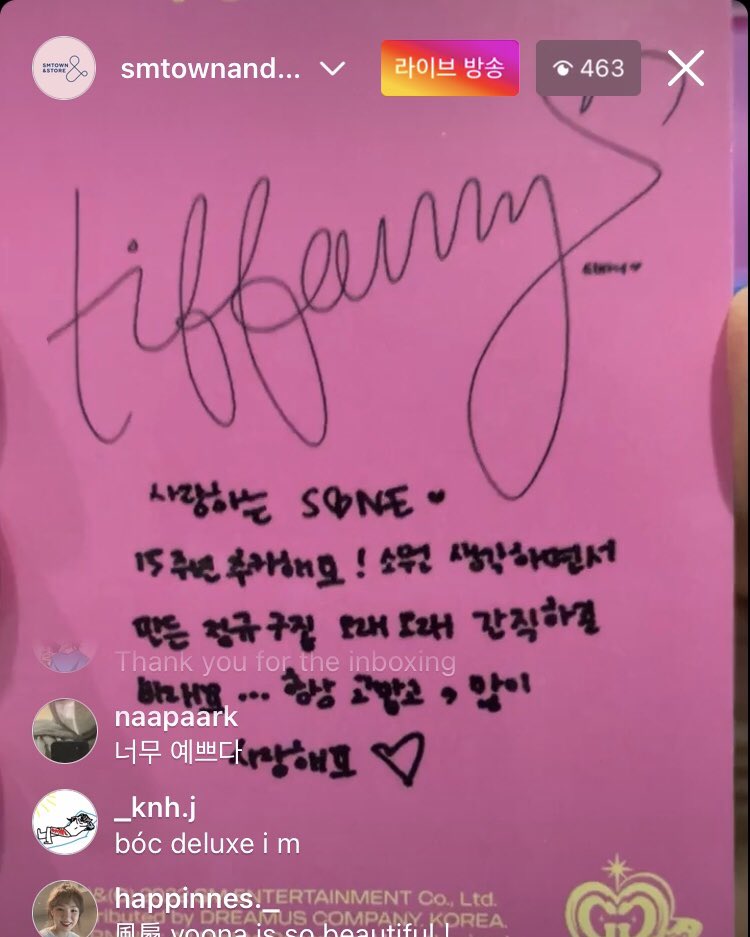 SMTOWN
&STORE
smtownand...
라이브 방송
463
tiffany
사랑하는 SONE
15주년 축하해요! 소원 생각하면서
만든 정규 구집 오래오래 간직하길
바래요... 항상 고맙고, 많이
사랑해요
Thank you for the inboxing
naapaark
너무 예쁘다
_knh.j
bóc deluxe i m
happinnes._
yoona is so beautiful !
SM ENTERTAINMENT Co., Ltd.
DREAMUS COMPANY, KOREA.